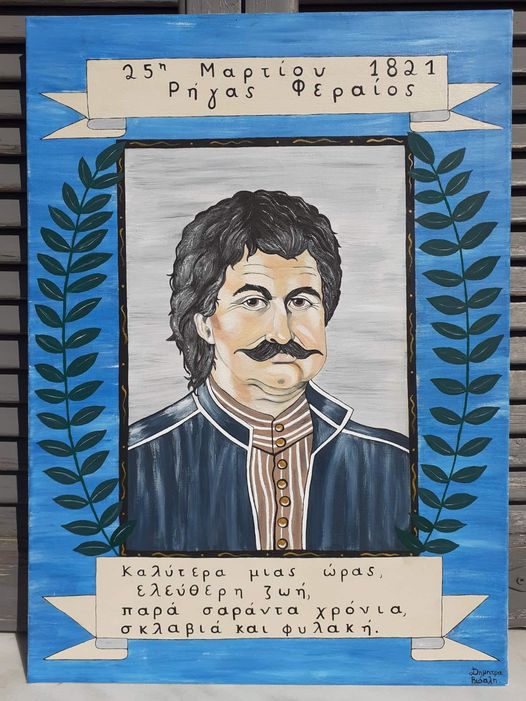 25η Μαρτίου 1821
Ρήγας Φεραίος
Καλύτερα μιας ώρας,
ελεύθερη ζωή,
παρά σαράντα χρόνια,
σκλαβιά και φυλακή.
Δήμητρα